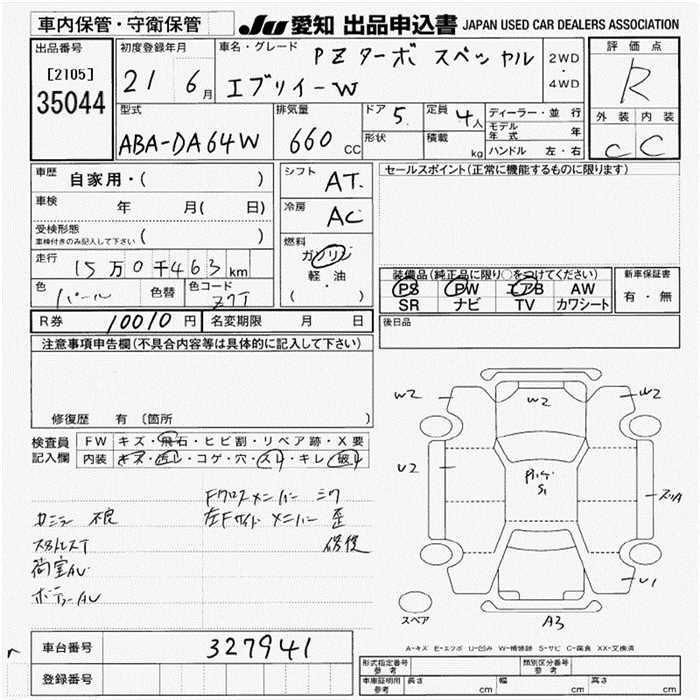 車内保管・守衛保管
JU 愛知 出品申込書 JAPAN USED CAR DEALERS ASSOCIATION
出品番号
[2105]
35044
初度登録年月
21 6月
車名・グレード
PZターボ スペシャル
エブリイーW
2WD
・
4WD
評価点
R
外装 内装
C C
型式
ABA-DA64W
排気量
660 CC
ドア 5
定員 4人
形状
積載 kg
ディーラー・並行
モデル年式 年
ハンドル 左・右
車歴 自家用・( )
車検 年 月( 日)
受検形態
車検付きのみ記入して下さい ( )
走行 15万0千463km
色 パール
色替
色コード Z7T
シフト AT
冷房 AC
燃料
ガソリン
軽油
( ・ )
セールスポイント(正常に機能するものに限ります)
装備品(純正品に限り○をつけてください)
PS PW エアB AW
SR ナビ TV カワシート
新車保証書
有・無
R券 10010円
名変期限 月 日
後日品
注意事項申告欄(不具合内容等は具体的に記入して下さい)
修復歴 有 〔箇所 〕
検査員
記入欄
FW キズ・飛石・ヒビ割・リペア跡・X要
内装 キズ・汚し・コゲ・穴・スレ・キレ・破れ
Fクロスメンバー
左Fサイドメンバー 歪
修復
不良
スタットレスT
荷室AU
W2 W2 W2
U2
S1
スリA
U1
A3
スペア
A-キズ E-エクボ U-凹み W-補修跡 S-サビ C-腐食 XX-交換済
車台番号 327941
登録番号
形式指定番号
参考
類別区分番号
参考
車庫証明用
参考
長さ cm
幅 cm
高さ cm